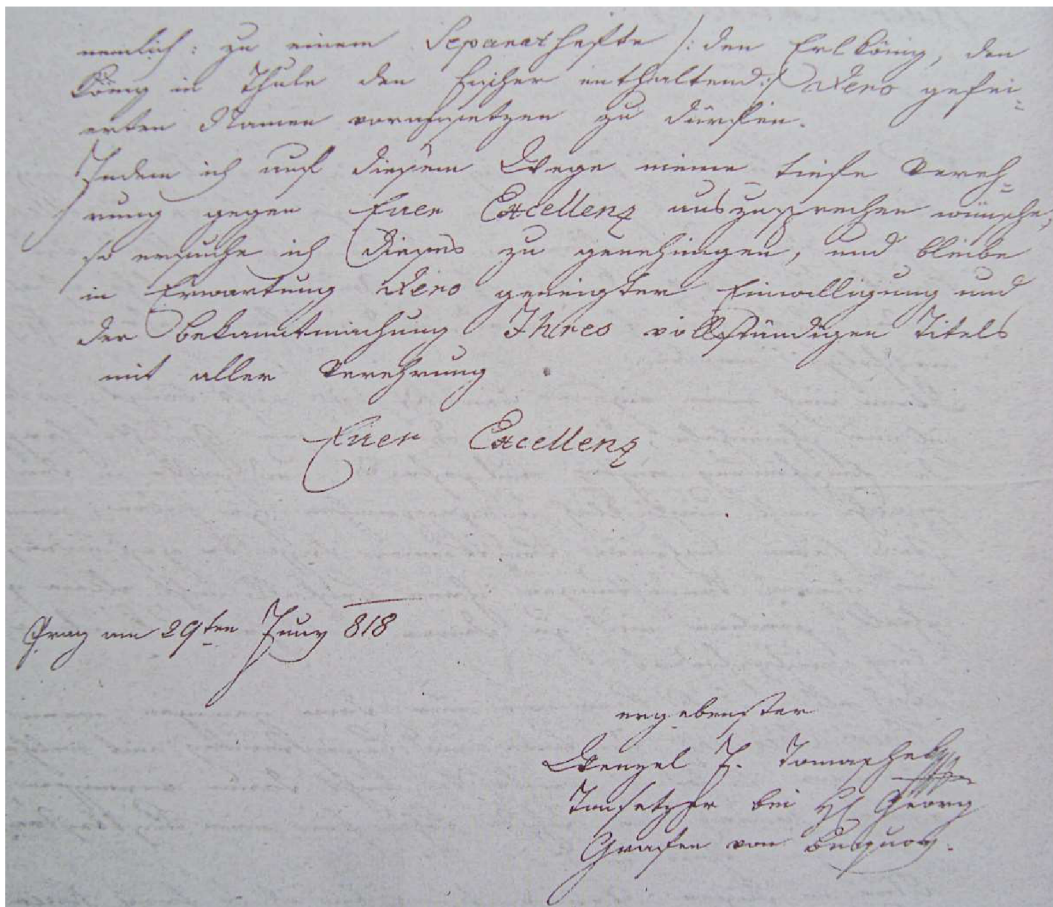 nemlich: zu einem Separathefte /: den Erlkönig, den
König in Thule den Fischer enthaltend:/ Dero gefei-
erten Namen vorausetzen zu dürfen.
Indem ich auf diesem Wege meine tiefe Vereh-
rung gegen Euer Excellenz auszusprechen wünsche,
so ersuche ich Dieses zu genehmigen, und bleibe
in Erwartung Dero geneigter Einwilligung und
der Bekanntmachung Ihres vollständigen Titels
mit aller Verehrung
Euer Excellenz
Prag am 29ten Juny 818
ergebenster
Wenzel J. Tomaschek
Tonsetzer bei H Georg
Grafen von Buquoy.